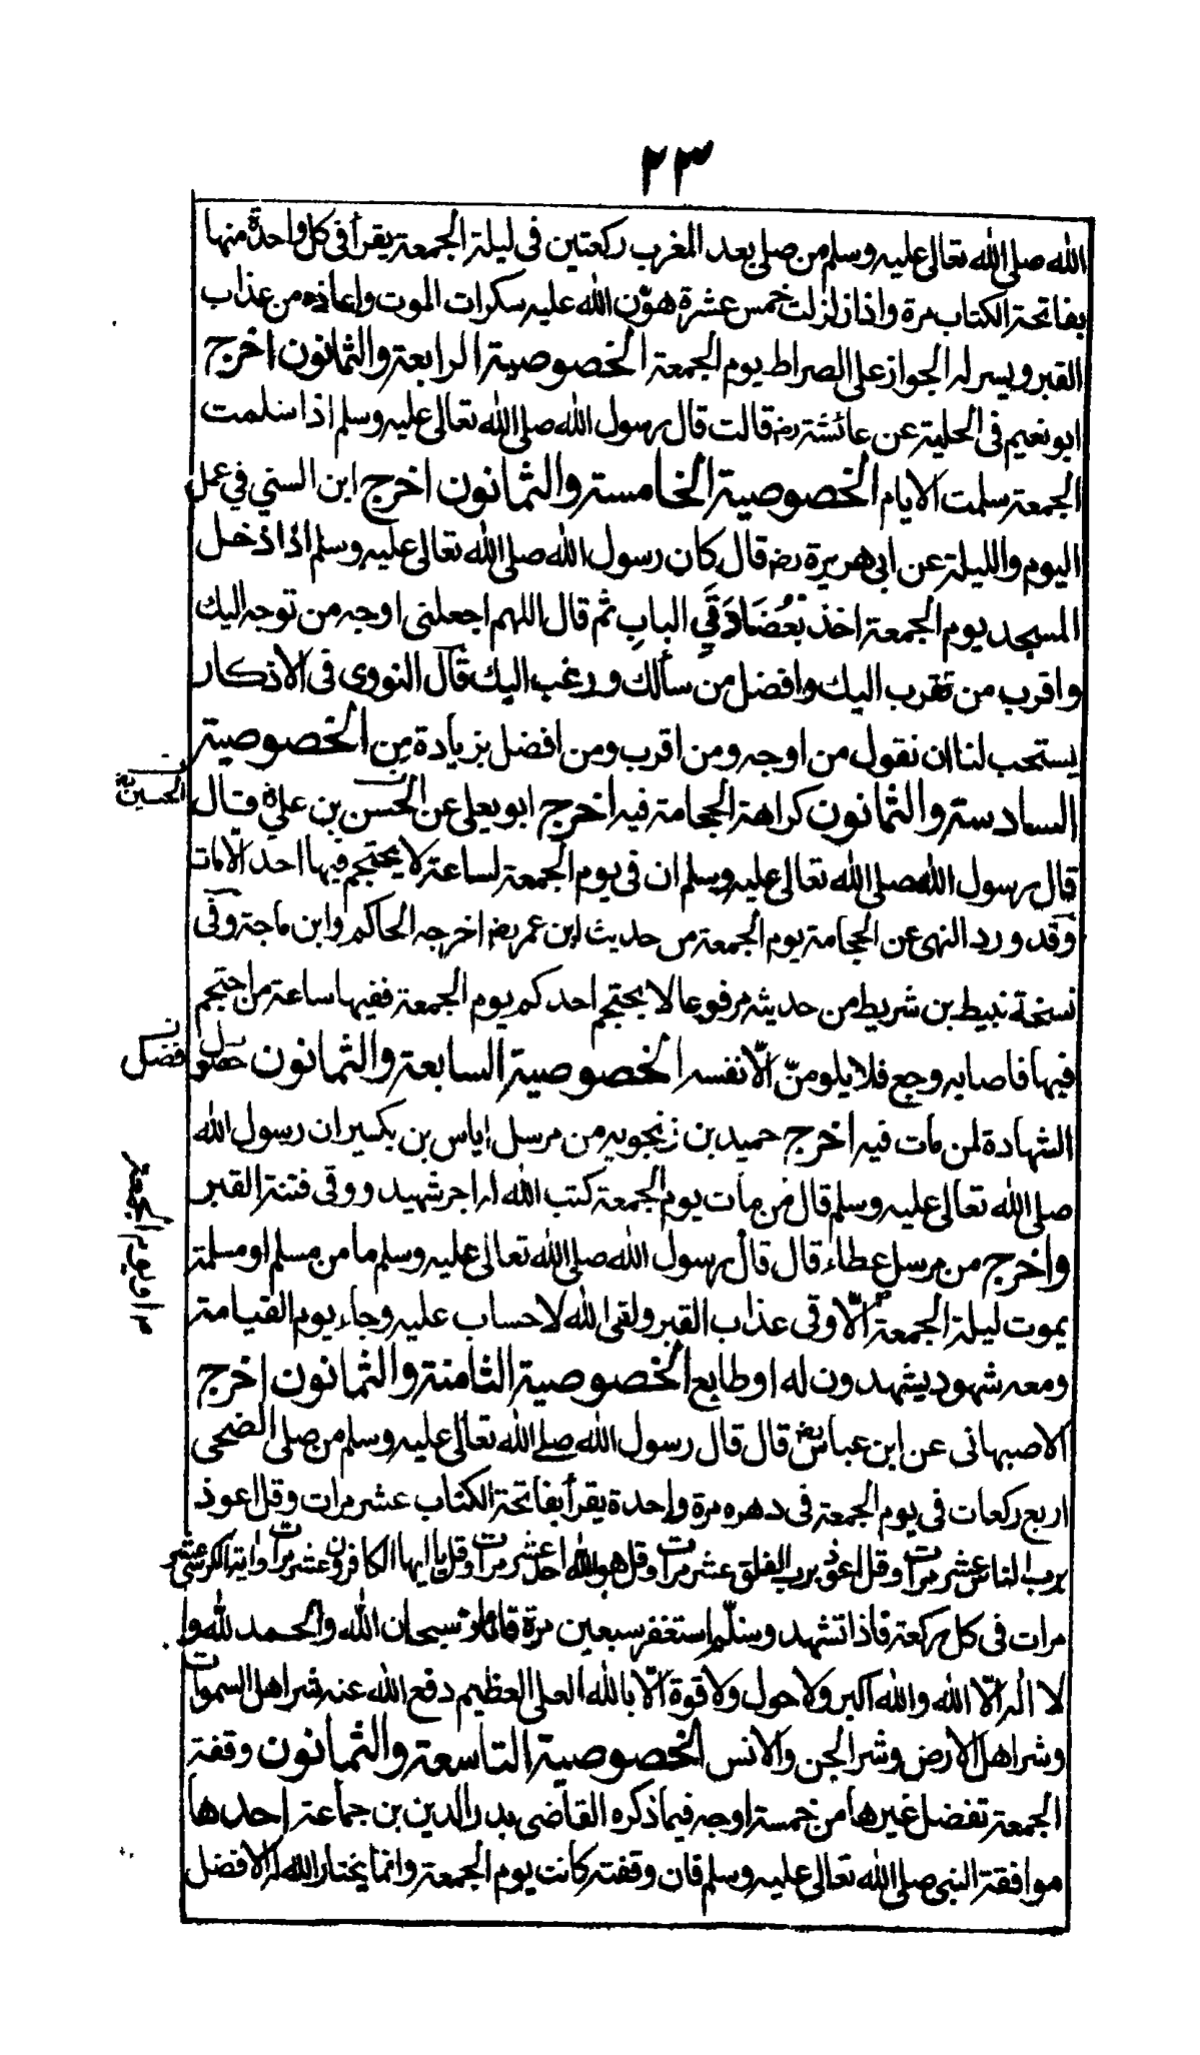 ٢٣
الله صلى الله تعالى عليه وسلم من صلى بعد المغرب ركعتين فى ليلة الجمعة يقرأ فى كل واحدة منهما
بفاتحة الكتاب مرة واذا زلزلت خمس عشرة هوّن الله عليه سكرات الموت واعاذه من عذاب
القبر ويسر له الجواز على الصراط يوم الجمعة الخصوصية الرابعة والثمانون اخرج
ابو نعيم فى الحلية عن عائشة رض قالت قال رسول الله صلى الله تعالى عليه وسلم اذا سلمت
الجمعة سلمت الايام الخصوصية الخامسة والثمانون اخرج ابن السني في عمل
اليوم والليلة عن ابى هريرة رض قال كان رسول الله صلى الله تعالى عليه وسلم اذا دخل
المسجد يوم الجمعة اخذ بعُضَادَتَيِ البابِ ثم قال اللهم اجعلنى اوجه من توجه اليك
واقرب من تقرب اليك وافضل من سألك ورغب اليك قال النووى فى الاذكار
يستحب لنا ان نقول من اوجه ومن اقرب ومن افضل بزيادة مِن الخصوصية
السادسة والثمانون كراهة الحجامة فيه اخرج ابو يعلى عن الحسن بن علي قال
الحسين
قال رسول الله صلى الله تعالى عليه وسلم ان فى يوم الجمعة لساعة لا يحتجم فيها احد الّا مات
وقد ورد النهى عن الحجامة يوم الجمعة من حديث ابن عمر رض اخرجه الحاكم وابن ماجة وفى
نسخة نبيط بن شريط من حديثه مرفوعا لا يحتجم احدكم يوم الجمعة ففيها ساعة من احتجم
فيها فاصابه وجع فلا يلومنّ الّا نفسه الخصوصية السابعة والثمانون حصول
فضل
الشهادة لمن مات فيه اخرج حميد بن زنجويه من مرسل اياس بن بكير ان رسول الله
صلى الله تعالى عليه وسلم قال من مات يوم الجمعة كتب الله له اجر شهيد ووقى فتنة القبر
واخرج من مرسل عطاء قال قال رسول الله صلى الله تعالى عليه وسلم ما من مسلم او مسلمة
يموت ليلة الجمعة الّا وقى عذاب القبر ولقى الله لا حساب عليه وجاء يوم القيامة
او يوم الجمعة
ومعه شهود يشهدون له او طابع الخصوصية الثامنة والثمانون اخرج
الاصبهانى عن ابن عباس رض قال قال رسول الله صلى الله تعالى عليه وسلم من صلى الضحى
اربع ركعات فى يوم الجمعة فى دهره مرة واحدة يقرأ بفاتحة الكتاب عشر مرات وقل اعوذ
برب الناس عشر مرات وقل اعوذ برب الفلق عشر مرات وقل هو الله احد عشر مرات وقل يا ايها الكافرون عشر مرات واية الكرسى عشر
مرات فى كل ركعة فاذا تشهد وسلّم استغفر سبعين مرة سبحان الله والحمد لله و
لا اله الّا الله والله اكبر ولا حول ولا قوة الّا بالله العلى العظيم دفع الله عنه شر اهل السموات
وشر اهل الارض وشر الجن والانس الخصوصية التاسعة والثمانون وقفة
الجمعة تفضل غيرها من خمسة اوجه فيما ذكره القاضى بدر الدين بن جماعة احدها
موافقة النبى صلى الله تعالى عليه وسلم فان وقفته كانت يوم الجمعة وانما يختار الله له الافضل